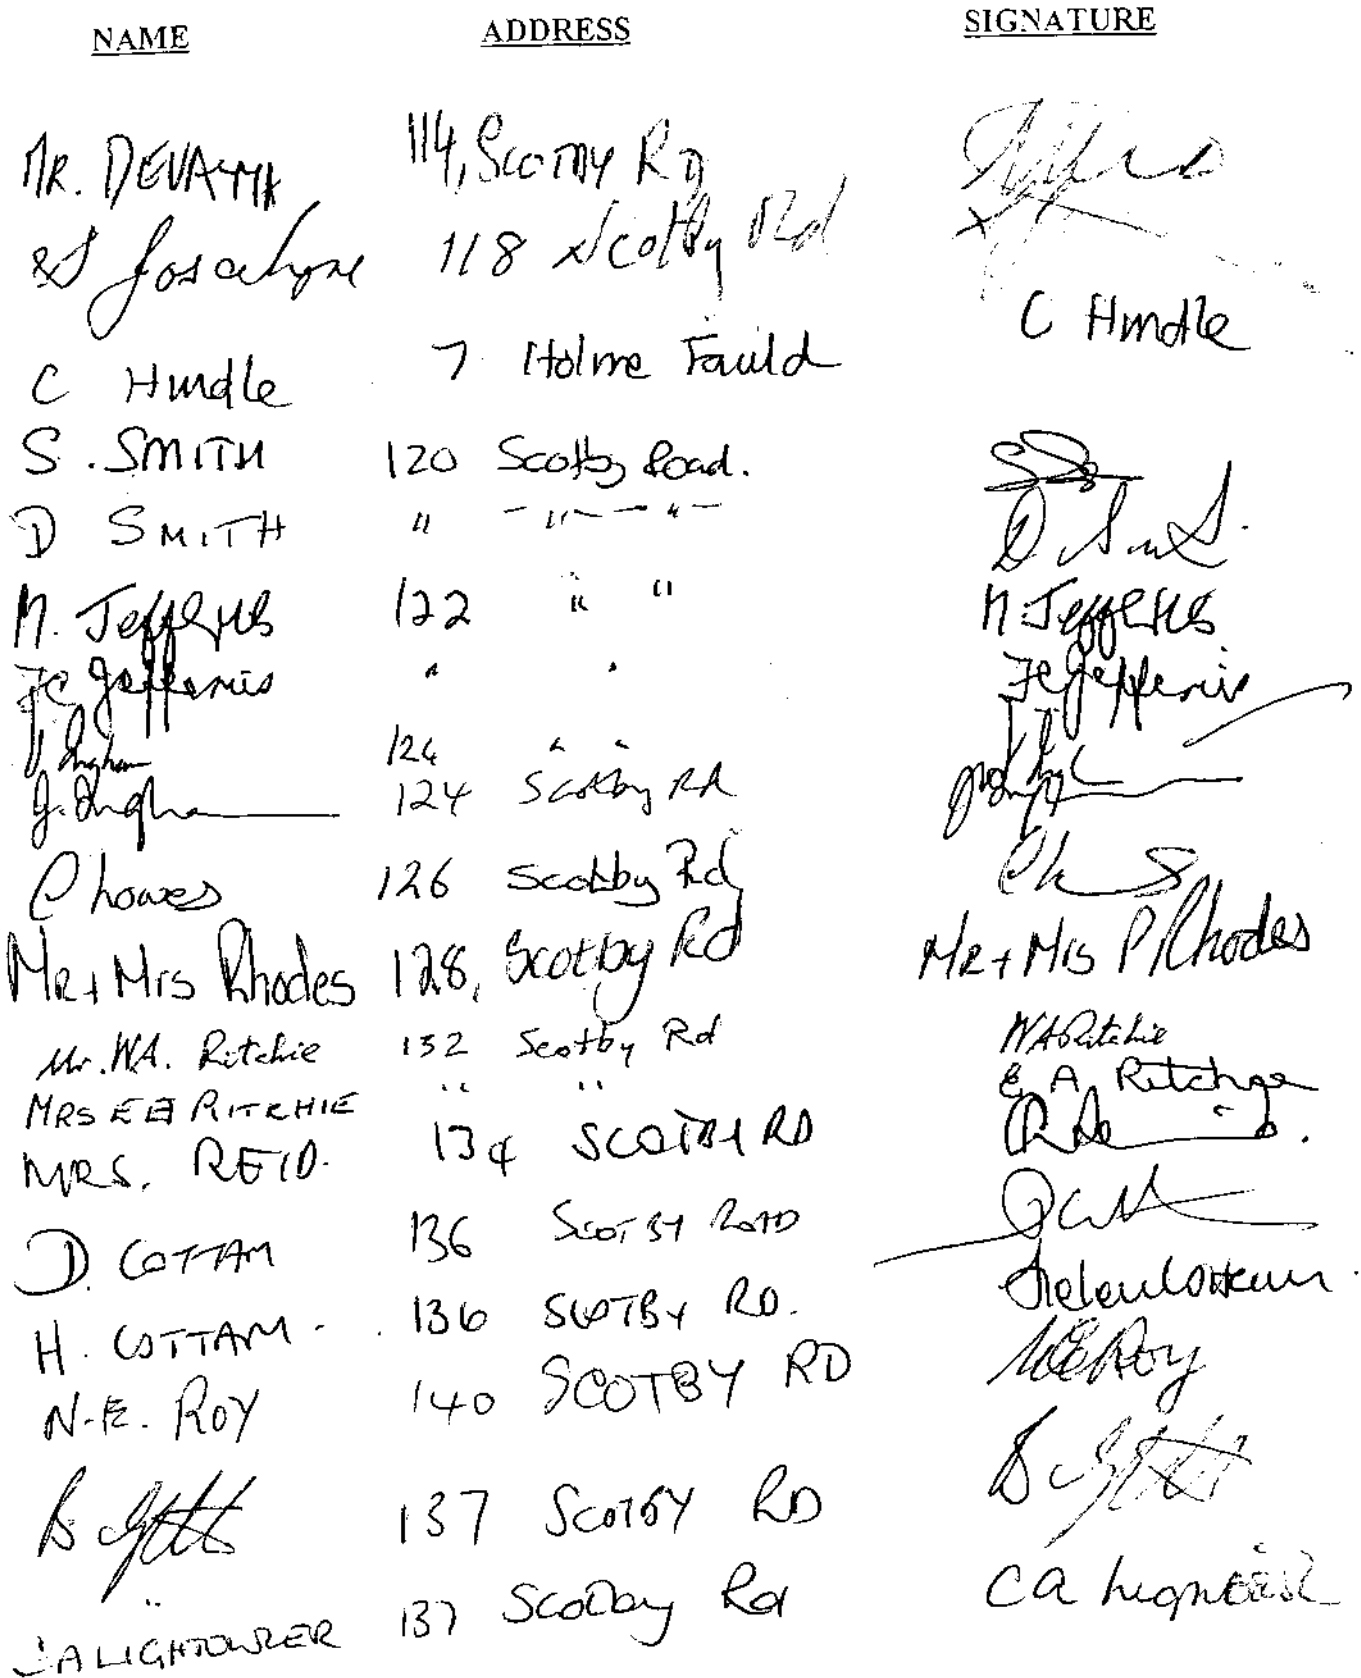 NAME ADDRESS SIGNATURE
MR. 114, SCOTBY RD
Joscelyne 118 Scotby Rd
C Hindle 7 Holme Fauld C Hindle
S. SMITH 120 Scotby Road.
D SMITH " " " D
M. Jefferies 122 " " M Jefferies
Jefferies " " Jefferies
J Ingham 124 " "
J. Ingham 124 Scotby Rd
C howes 126 Scotby Rd
Mr + Mrs Rhodes 128, Scotby Rd Mr + Mrs P Rhodes
Mr. W.A. Ritchie 132 Scotby Rd WA Ritchie
MRS RITCHIE " " E A Ritchie
MRS. REID. 134 SCOTBY RD
D. COTTAM 136 SCOTBY ROAD
H. COTTAM. 136 SCOTBY RD. Helen Cottam.
N.E. ROY 140 SCOTBY RD NE Roy
B 137 SCOTBY RD B
A LIGHTOWLER 137 Scotby Rd CA